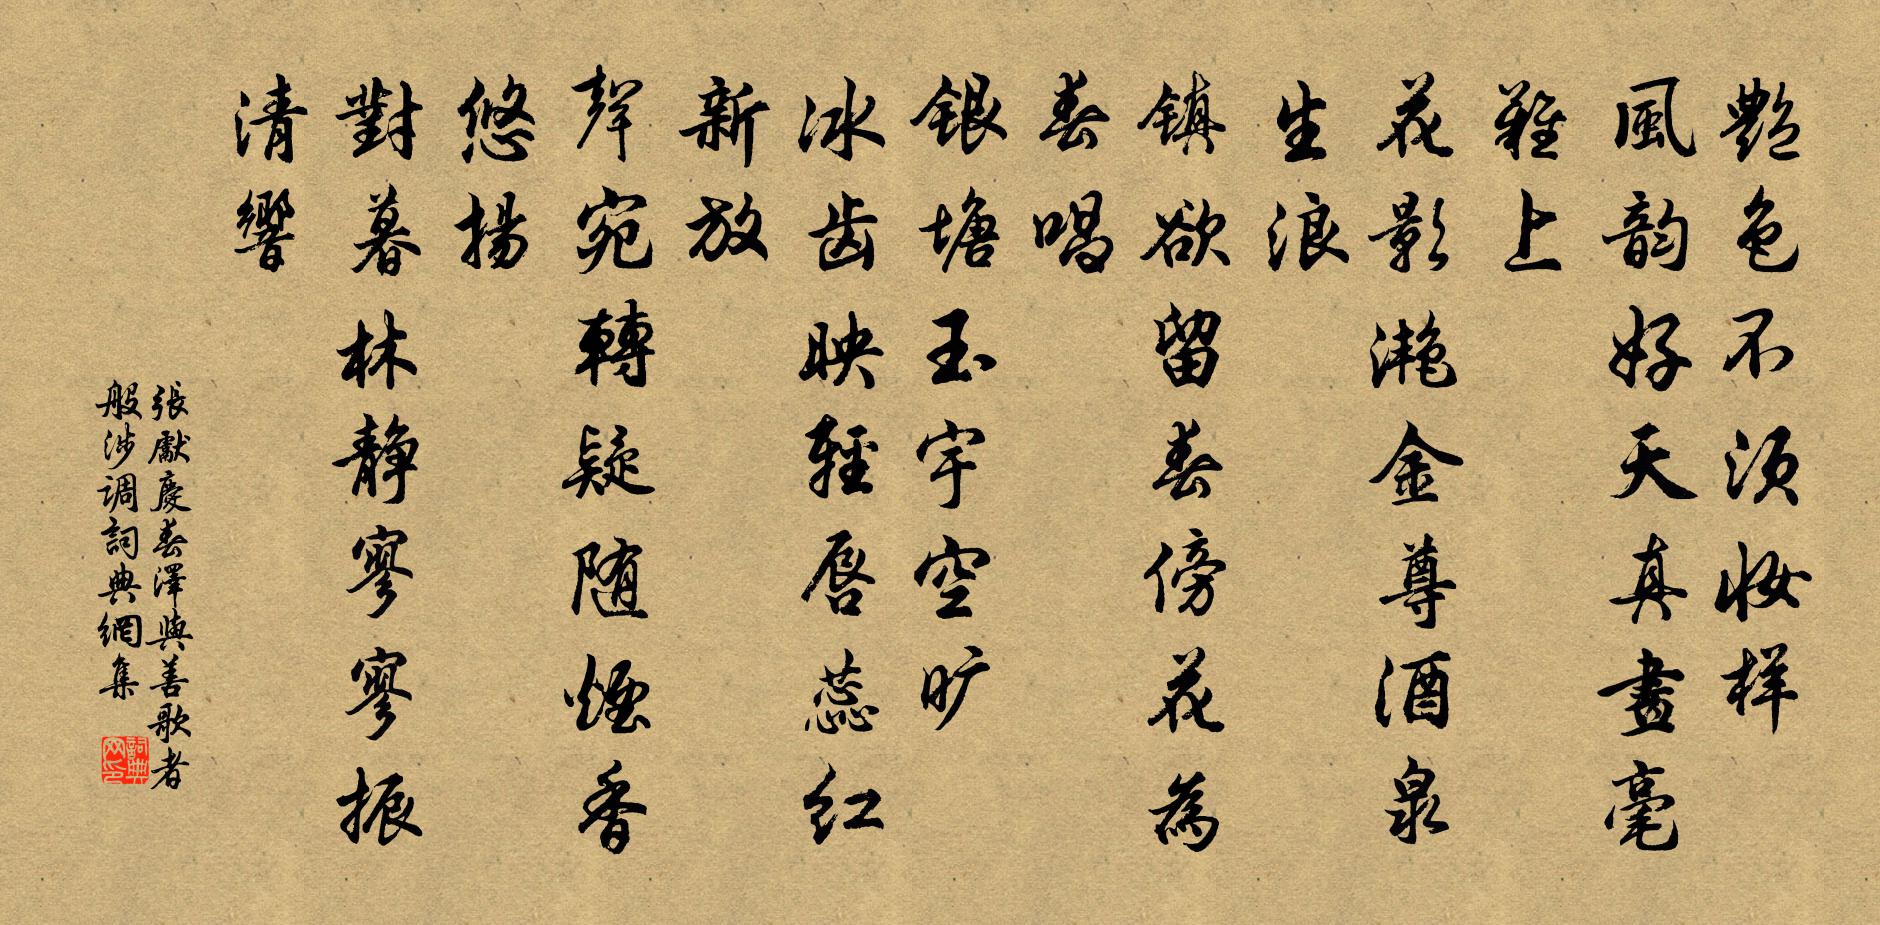 艷色不須妝样
風韵好天真畫毫
難上
花影滟金尊酒泉
生浪
鎮欲留春傍花為
春唱
銀塘玉宇空旷
冰齿映輕唇蕊红
新放
聲宛轉疑随煙香
悠揚
對暮林静寥寥振
清響
張獻慶春澤與善歌者
般涉调詞典網集
詞典网印